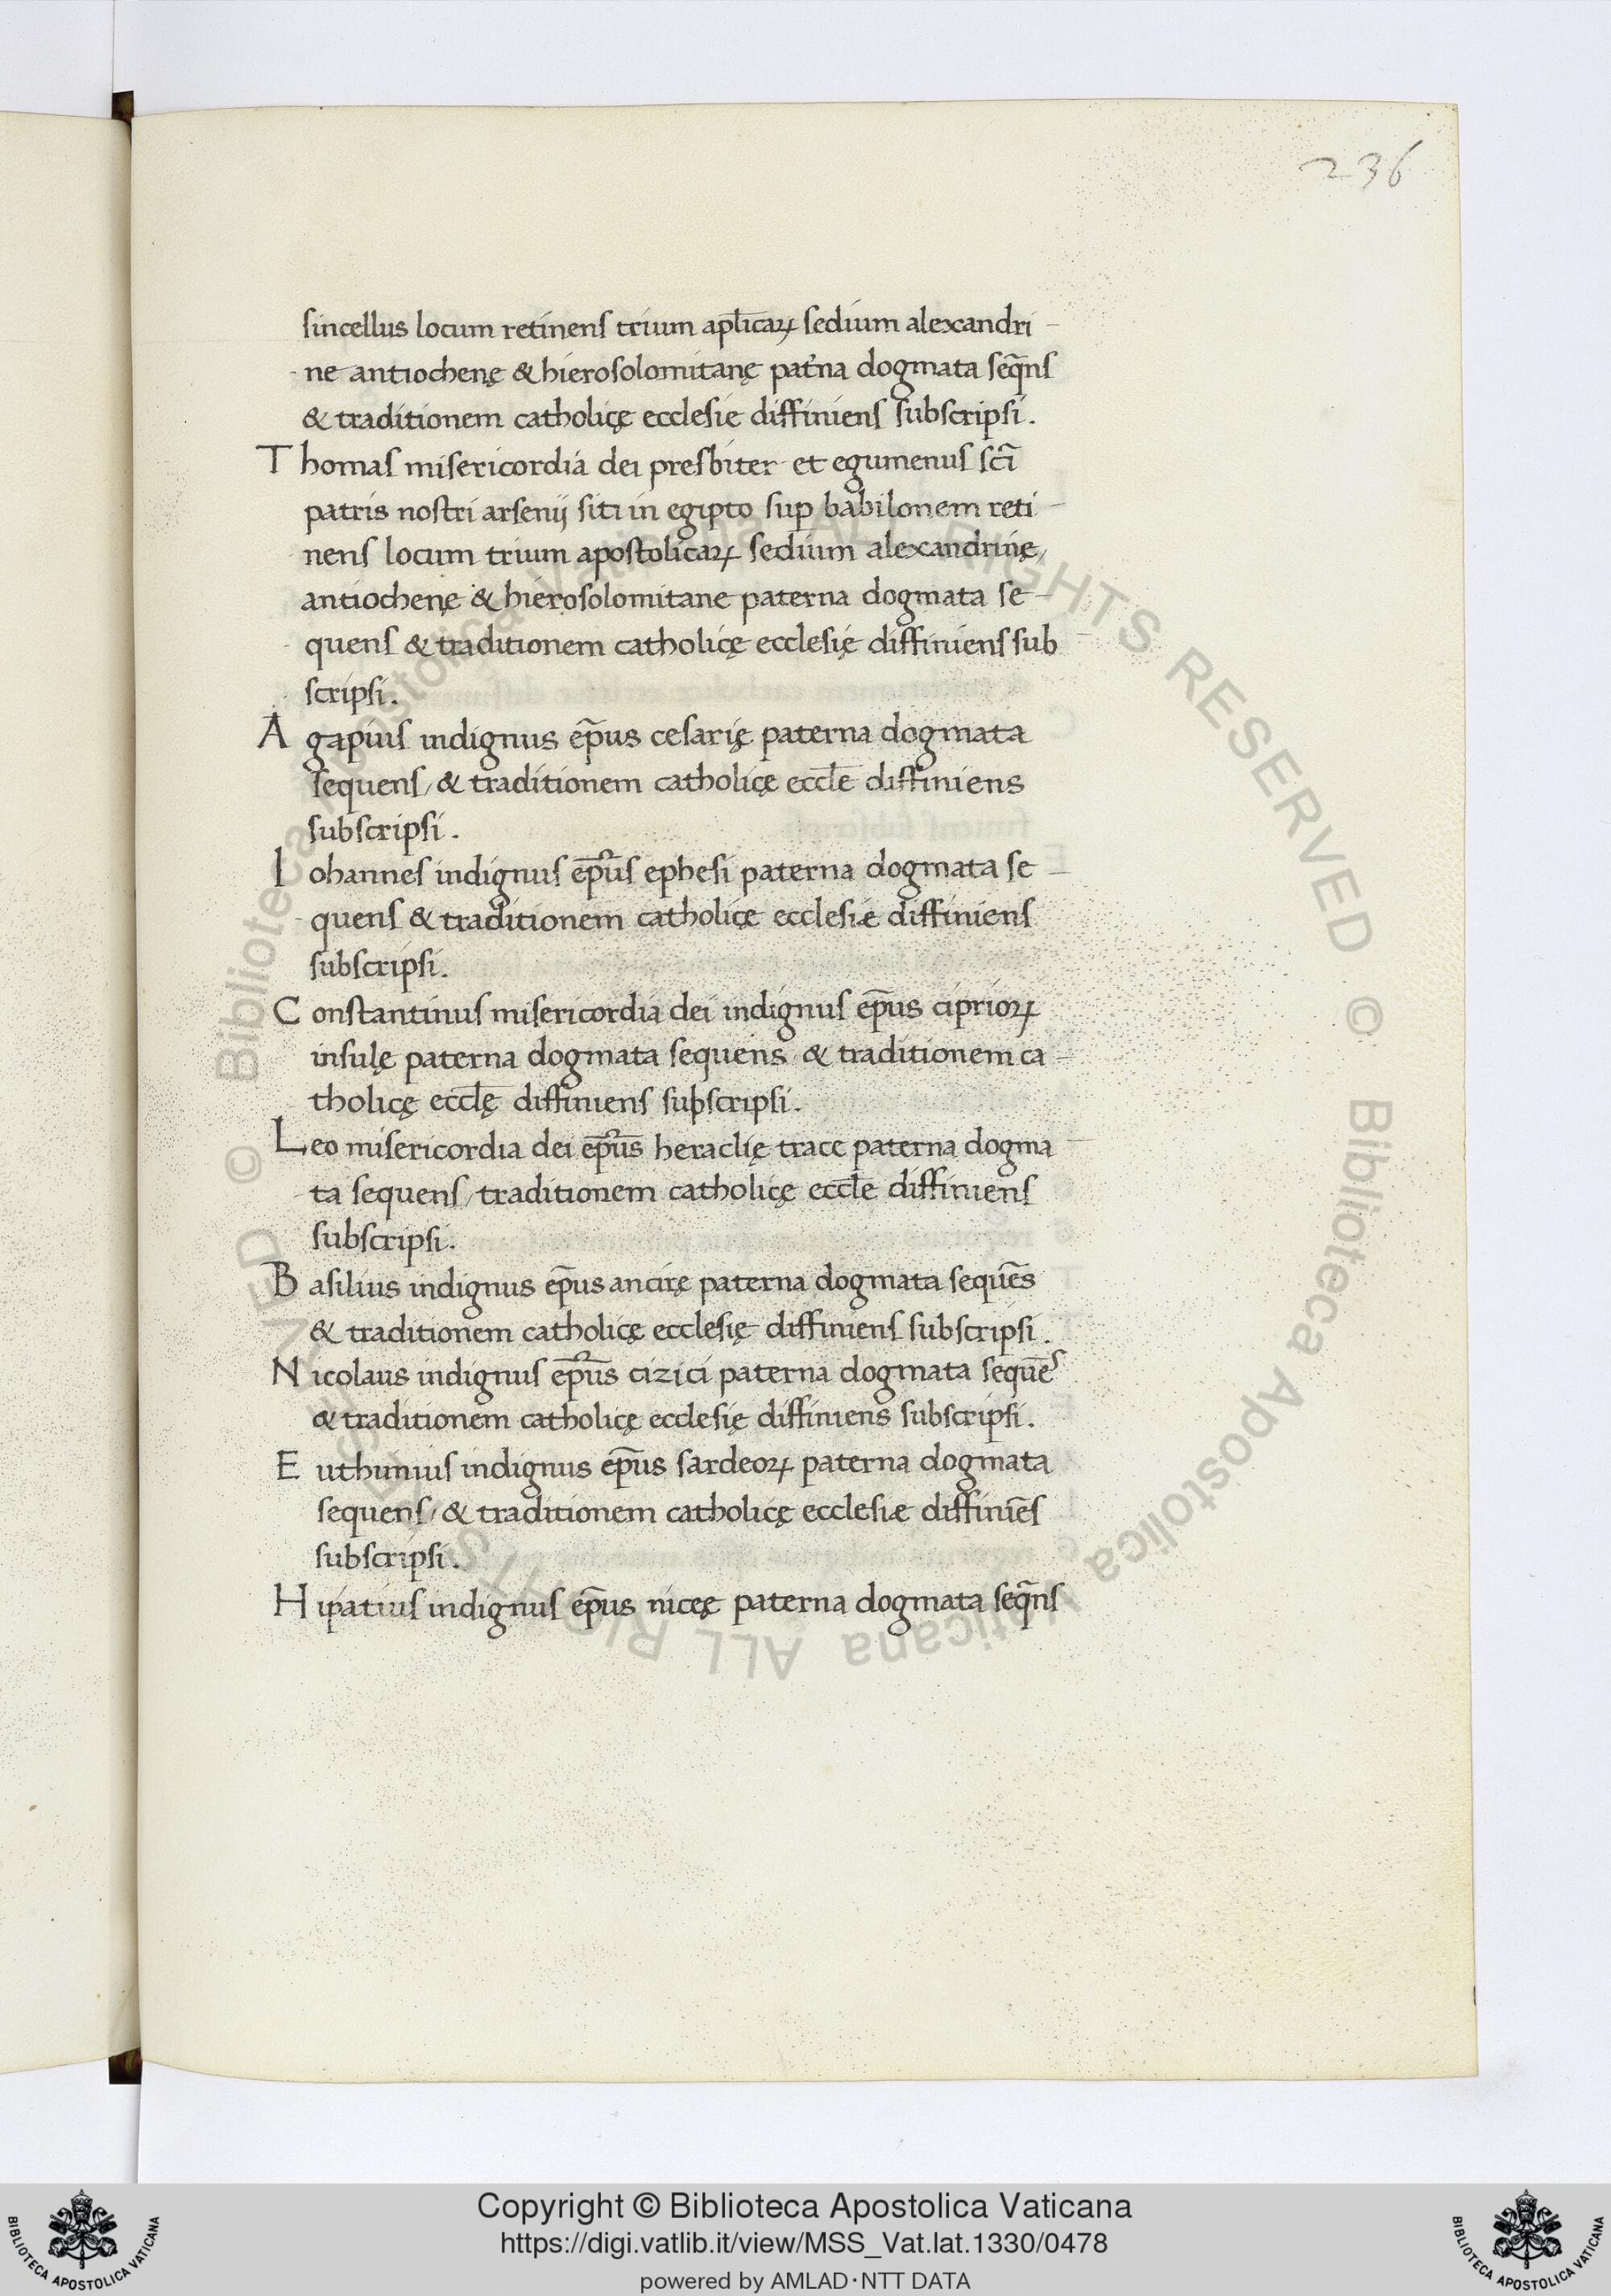 236
sincellus locum retinens trium apl̅icaꝝ sedium alexandri-
ne antiochenę & hierosolomitanę pat̾na dogmata seq̃ns
& traditionem catholicę ecclesie diffiniens subscripsi.
Thomas misericordia dei presbiter et egumenus sc̃i
patris nostri arsenij siti in egipto sup̱ babilonem reti-
nens locum trium apostolicaꝝ sedium alexandrinę,
antiochenę & hierosolomitane paterna dogmata se-
quens & traditionem catholicę ecclesię diffiniens sub
scripsi.
Agapius indignus ep̃us cesarię paterna dogmata
sequens, & traditionem catholicę eccl̅e diffiniens
subscripsi.
Iohannes indignus ep̃us ephesi paterna dogmata se-
quens & traditionem catholicę ecclesiæ diffiniens
subscripsi.
Constantinus misericordia dei indignus ep̃us ciprioꝝ
insulę paterna dogmata sequens & traditionem ca-
tholicę eccl̅ę diffiniens subscripsi.
Leo misericordia dei ep̃us heraclię trace paterna dogma-
ta sequens, traditionem catholicę eccl̅e diffiniens
subscripsi.
Basilius indignus ep̃us ancirę paterna dogmata sequēs
& traditionem catholicę ecclesię diffiniens subscripsi.
Nicolaus indignus ep̃us cizici paterna dogmata sequēs
& traditionem catholicę ecclesię diffiniens subscripsi.
Euthimius indignus ep̃us sardeoꝝ paterna dogmata
sequens, & traditionem catholicę ecclesiæ diffiniēs
subscripsi.
Hipatius indignus ep̃us nicęę paterna dogmata seq̃ns
© Biblioteca Apostolica Vaticana ALL RIGHTS RESERVED © Biblioteca Apostolica Vaticana ALL RIGHTS RESERVED
BIBLIOTECA APOSTOLICA VATICANA
Copyright © Biblioteca Apostolica Vaticana
https://digi.vatlib.it/view/MSS_Vat.lat.1330/0478
powered by AMLAD·NTT DATA
BIBLIOTECA APOSTOLICA VATICANA